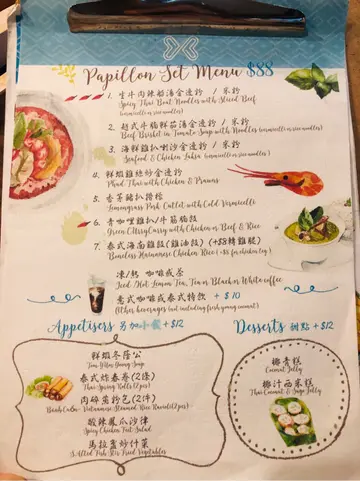 Papillon Set Menu $88
1. 生牛肉辣船湯金邊粉 / 米粉
Spicy Thai Boat Noodles with Sliced Beef
(vermicelli or rice noodles)
2. 越式牛腩鮮茄湯金邊粉 / 米粉
Beef Brisket in Tomato Soup with Noodles (vermicelli or rice noodles)
3. 海鮮雞扒喇沙金邊粉 / 米粉
Seafood & Chicken Laksa (vermicelli or rice noodles)
4. 鮮蝦雞絲炒金邊粉
Phad Thai with Chicken & Prawns
5. 香茅豬扒撈檬
Lemongrass Pork Cutlet with Cold Vermicelli
6. 青咖哩雞扒/牛筋腩飯
Green Curry with Chicken or Beef & Rice
7. 泰式海南雞飯(雞油飯) (+$8轉雞髀)
Boneless Hainanese Chicken Rice (+$8 for chicken leg)
凍/熱 咖啡或茶
Iced/Hot Lemon Tea, Tea or Black or White coffee
意式咖啡或泰式特飲 + $10
(Other beverages but including fresh young coconut)
Appetisers 另加小食 +$12
鮮蝦冬陰公
Tom Yum Goong Soup
泰式炸春卷(2條)
Thai Spring Rolls (2pcs)
肉碎蒸粉包(2件)
Banh Cuon - Vietnamese Steamed Rice Ravioli (2pcs)
酸辣鳳爪沙律
Spicy Chicken Feet Salad
馬拉盞炒什菜
Salted Fish Stir Fried Vegetables
Desserts 甜點 +$12
椰青糕
Coconut Jelly
椰汁西米糕
Thai Coconut & Sago Jelly